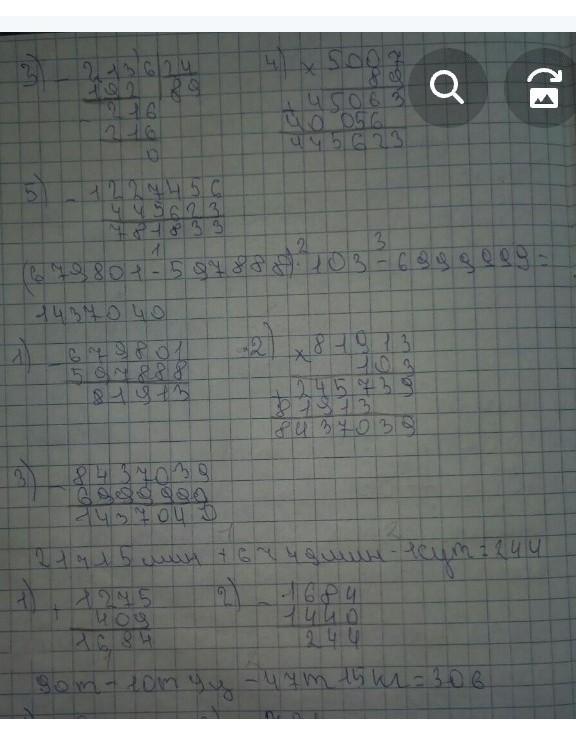 3) - 2136 | 24
192 | 89
216
216
0
4) × 5007
89
+ 45063
40056
445623
5) - 1227456
445623
781833
1 2 3
(679801 - 597888) · 103 - 6999999 =
1437040
1) - 679801
597888
81913
2) × 81913
103
+ 245739
81913
8437039
3) - 8437039
6999999
1437040
21ч 15 мин + 6ч 49мин - 1сут = 244
1) + 1275
409
1684
2) - 1684
1440
244
90т - 10т 9ц - 47т 15кг =